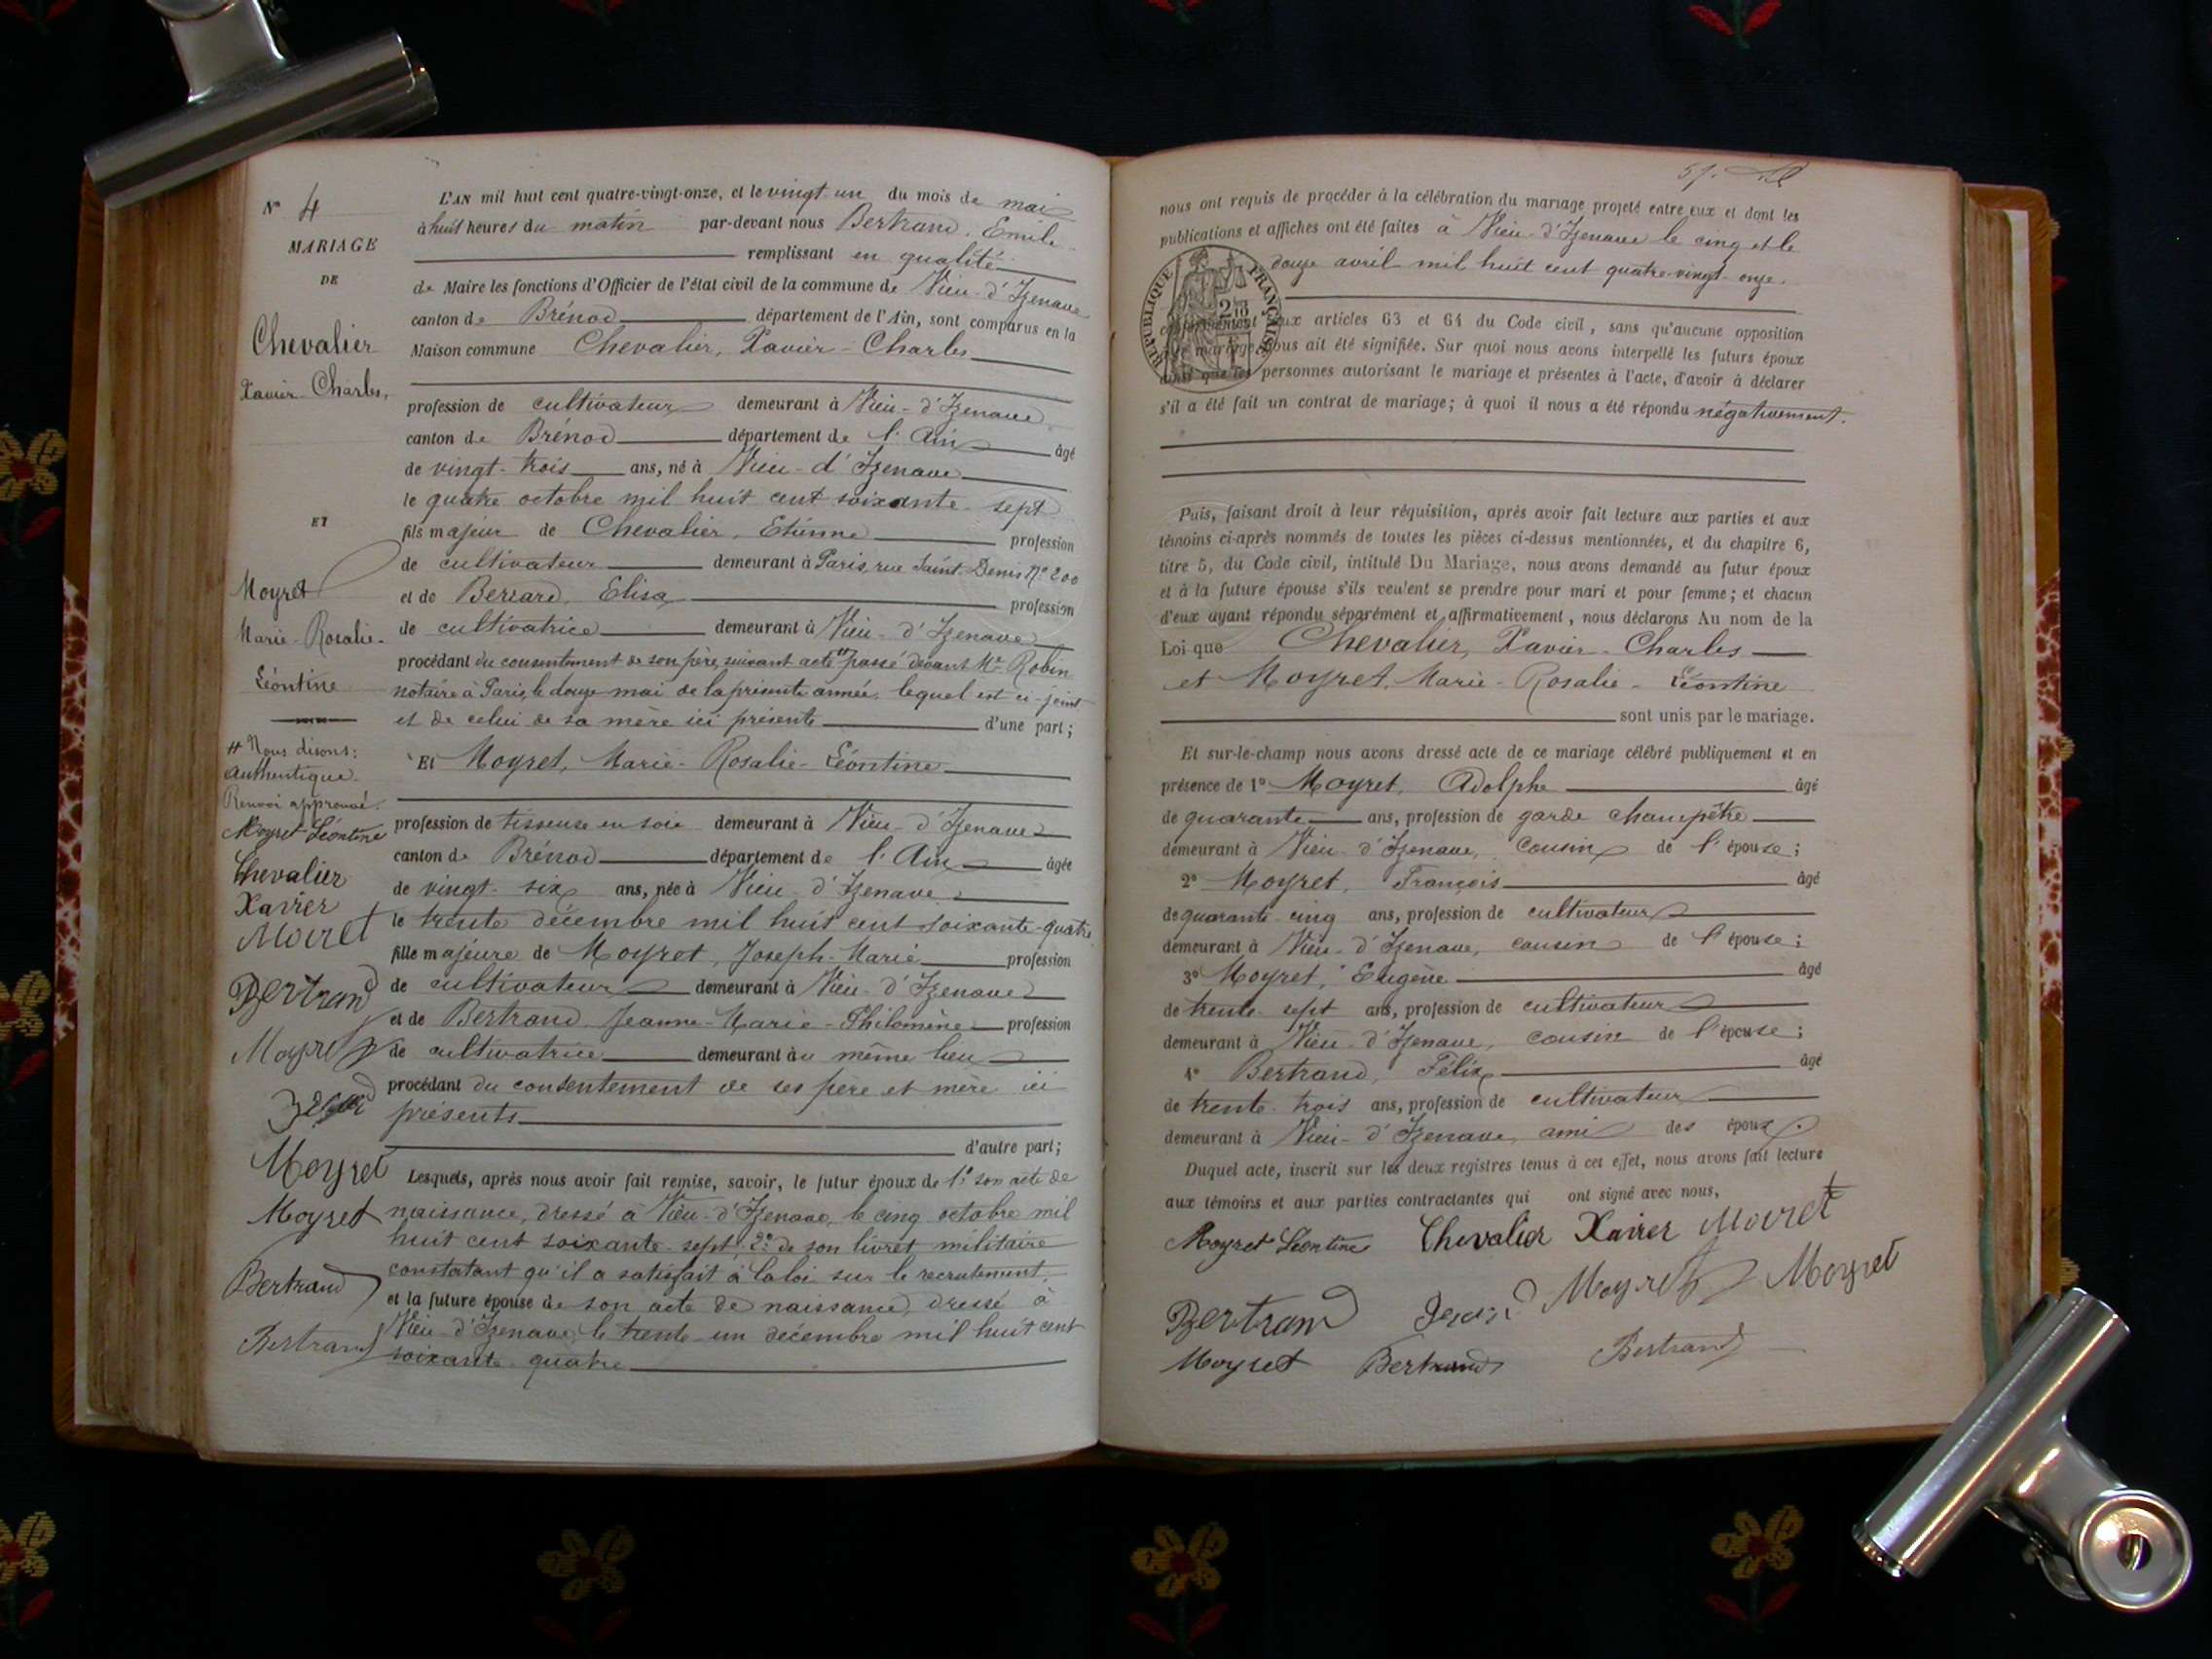 N° 4
MARIAGE
DE
Chevalier
Xavier-Charles,
ET
Moyret
Marie-Rosalie-
Léontine
# Nous disons:
authentique
Renvoi approuvé.
Moyret Léontine
Chevalier
Xavier
Moiret
Bertrand
Moyret
Moyret
Moyret
Bertrand
Bertrand
L'AN mil huit cent quatre-vingt-onze, et le vingt-un du mois de mai
à huit heures du matin par-devant nous Bertrand, Emile
remplissant en qualité
de Maire les fonctions d'Officier de l'état civil de la commune de Vieu-d'Izenave
canton de Brénod département de l'Ain, sont comparus en la
Maison commune Chevalier, Xavier-Charles
profession de cultivateur demeurant à Vieu-d'Izenave
canton de Brénod département de l'Ain âgé
de vingt-trois ans, né à Vieu-d'Izenave
le quatre octobre mil huit cent soixante-sept
fils majeur de Chevalier, Etienne profession
de cultivateur demeurant à Paris, rue Saint-Denis N° 200
et de Berrard, Elisa profession
de cultivatrice demeurant à Vieu-d'Izenave
procédant du consentement de son père, suivant acte # passé devant Me Robin
notaire à Paris, le douze mai de la présente année, lequel est ci-joint
et de celui de sa mère ici présente d'une part;
Et Moyret, Marie-Rosalie-Léontine
profession de tisseuse en soie demeurant à Vieu-d'Izenave
canton de Brénod département de l'Ain âgée
de vingt-six ans, née à Vieu-d'Izenave
le trente décembre mil huit cent soixante-quatre
fille majeure de Moyret, Joseph-Marie profession
de cultivateur demeurant à Vieu-d'Izenave
et de Bertrand, Jeanne-Marie-Philomène profession
de cultivatrice demeurant au même lieu
procédant du consentement de ses père et mère ici
présents
d'autre part;
Lesquels, après nous avoir fait remise, savoir, le futur époux de 1° son acte de
naissance, dressé à Vieu-d'Izenave, le cinq octobre mil
huit cent soixante-sept; 2° de son livret militaire
constatant qu'il a satisfait à la loi sur le recrutement;
et la future épouse de son acte de naissance, dressé à
Vieu-d'Izenave, le trente-un décembre mil huit cent
soixante-quatre
57.
nous ont requis de procéder à la célébration du mariage projeté entre eux et dont les
publications et affiches ont été faites à Vieu-d'Izenave le cinq et le
douze avril mil huit cent quatre-vingt-onze.
RÉPUBLIQUE FRANÇAISE
conformément aux articles 63 et 64 du Code civil, sans qu'aucune opposition
mariage nous ait été signifiée. Sur quoi nous avons interpellé les futurs époux
ainsi que les personnes autorisant le mariage et présentes à l'acte, d'avoir à déclarer
s'il a été fait un contrat de mariage; à quoi il nous a été répondu négativement.
Puis, faisant droit à leur réquisition, après avoir fait lecture aux parties et aux
témoins ci-après nommés de toutes les pièces ci-dessus mentionnées, et du chapitre 6,
titre 5, du Code civil, intitulé Du Mariage, nous avons demandé au futur époux
et à la future épouse s'ils veulent se prendre pour mari et pour femme; et chacun
d'eux ayant répondu séparément et affirmativement, nous déclarons Au nom de la
Loi que Chevalier, Xavier-Charles
et Moyret, Marie-Rosalie-Léontine
sont unis par le mariage.
Et sur-le-champ nous avons dressé acte de ce mariage célébré publiquement et en
présence de 1° Moyret, Adolphe âgé
de quarante ans, profession de garde champêtre
demeurant à Vieu-d'Izenave, cousin de l'épouse;
2° Moyret, François âgé
de quarante-cinq ans, profession de cultivateur
demeurant à Vieu-d'Izenave, cousin de l'épouse;
3° Moyret, Eugène âgé
de trente-sept ans, profession de cultivateur
demeurant à Vieu-d'Izenave, cousin de l'épouse;
4° Bertrand, Félix âgé
de trente-trois ans, profession de cultivateur
demeurant à Vieu-d'Izenave, ami des époux.
Duquel acte, inscrit sur les deux registres tenus à cet effet, nous avons fait lecture
aux témoins et aux parties contractantes qui ont signé avec nous,
Moyret Léontine Chevalier Xavier Moiret
Bertrand Moyret Moyret
Moyret Bertrand Bertrand